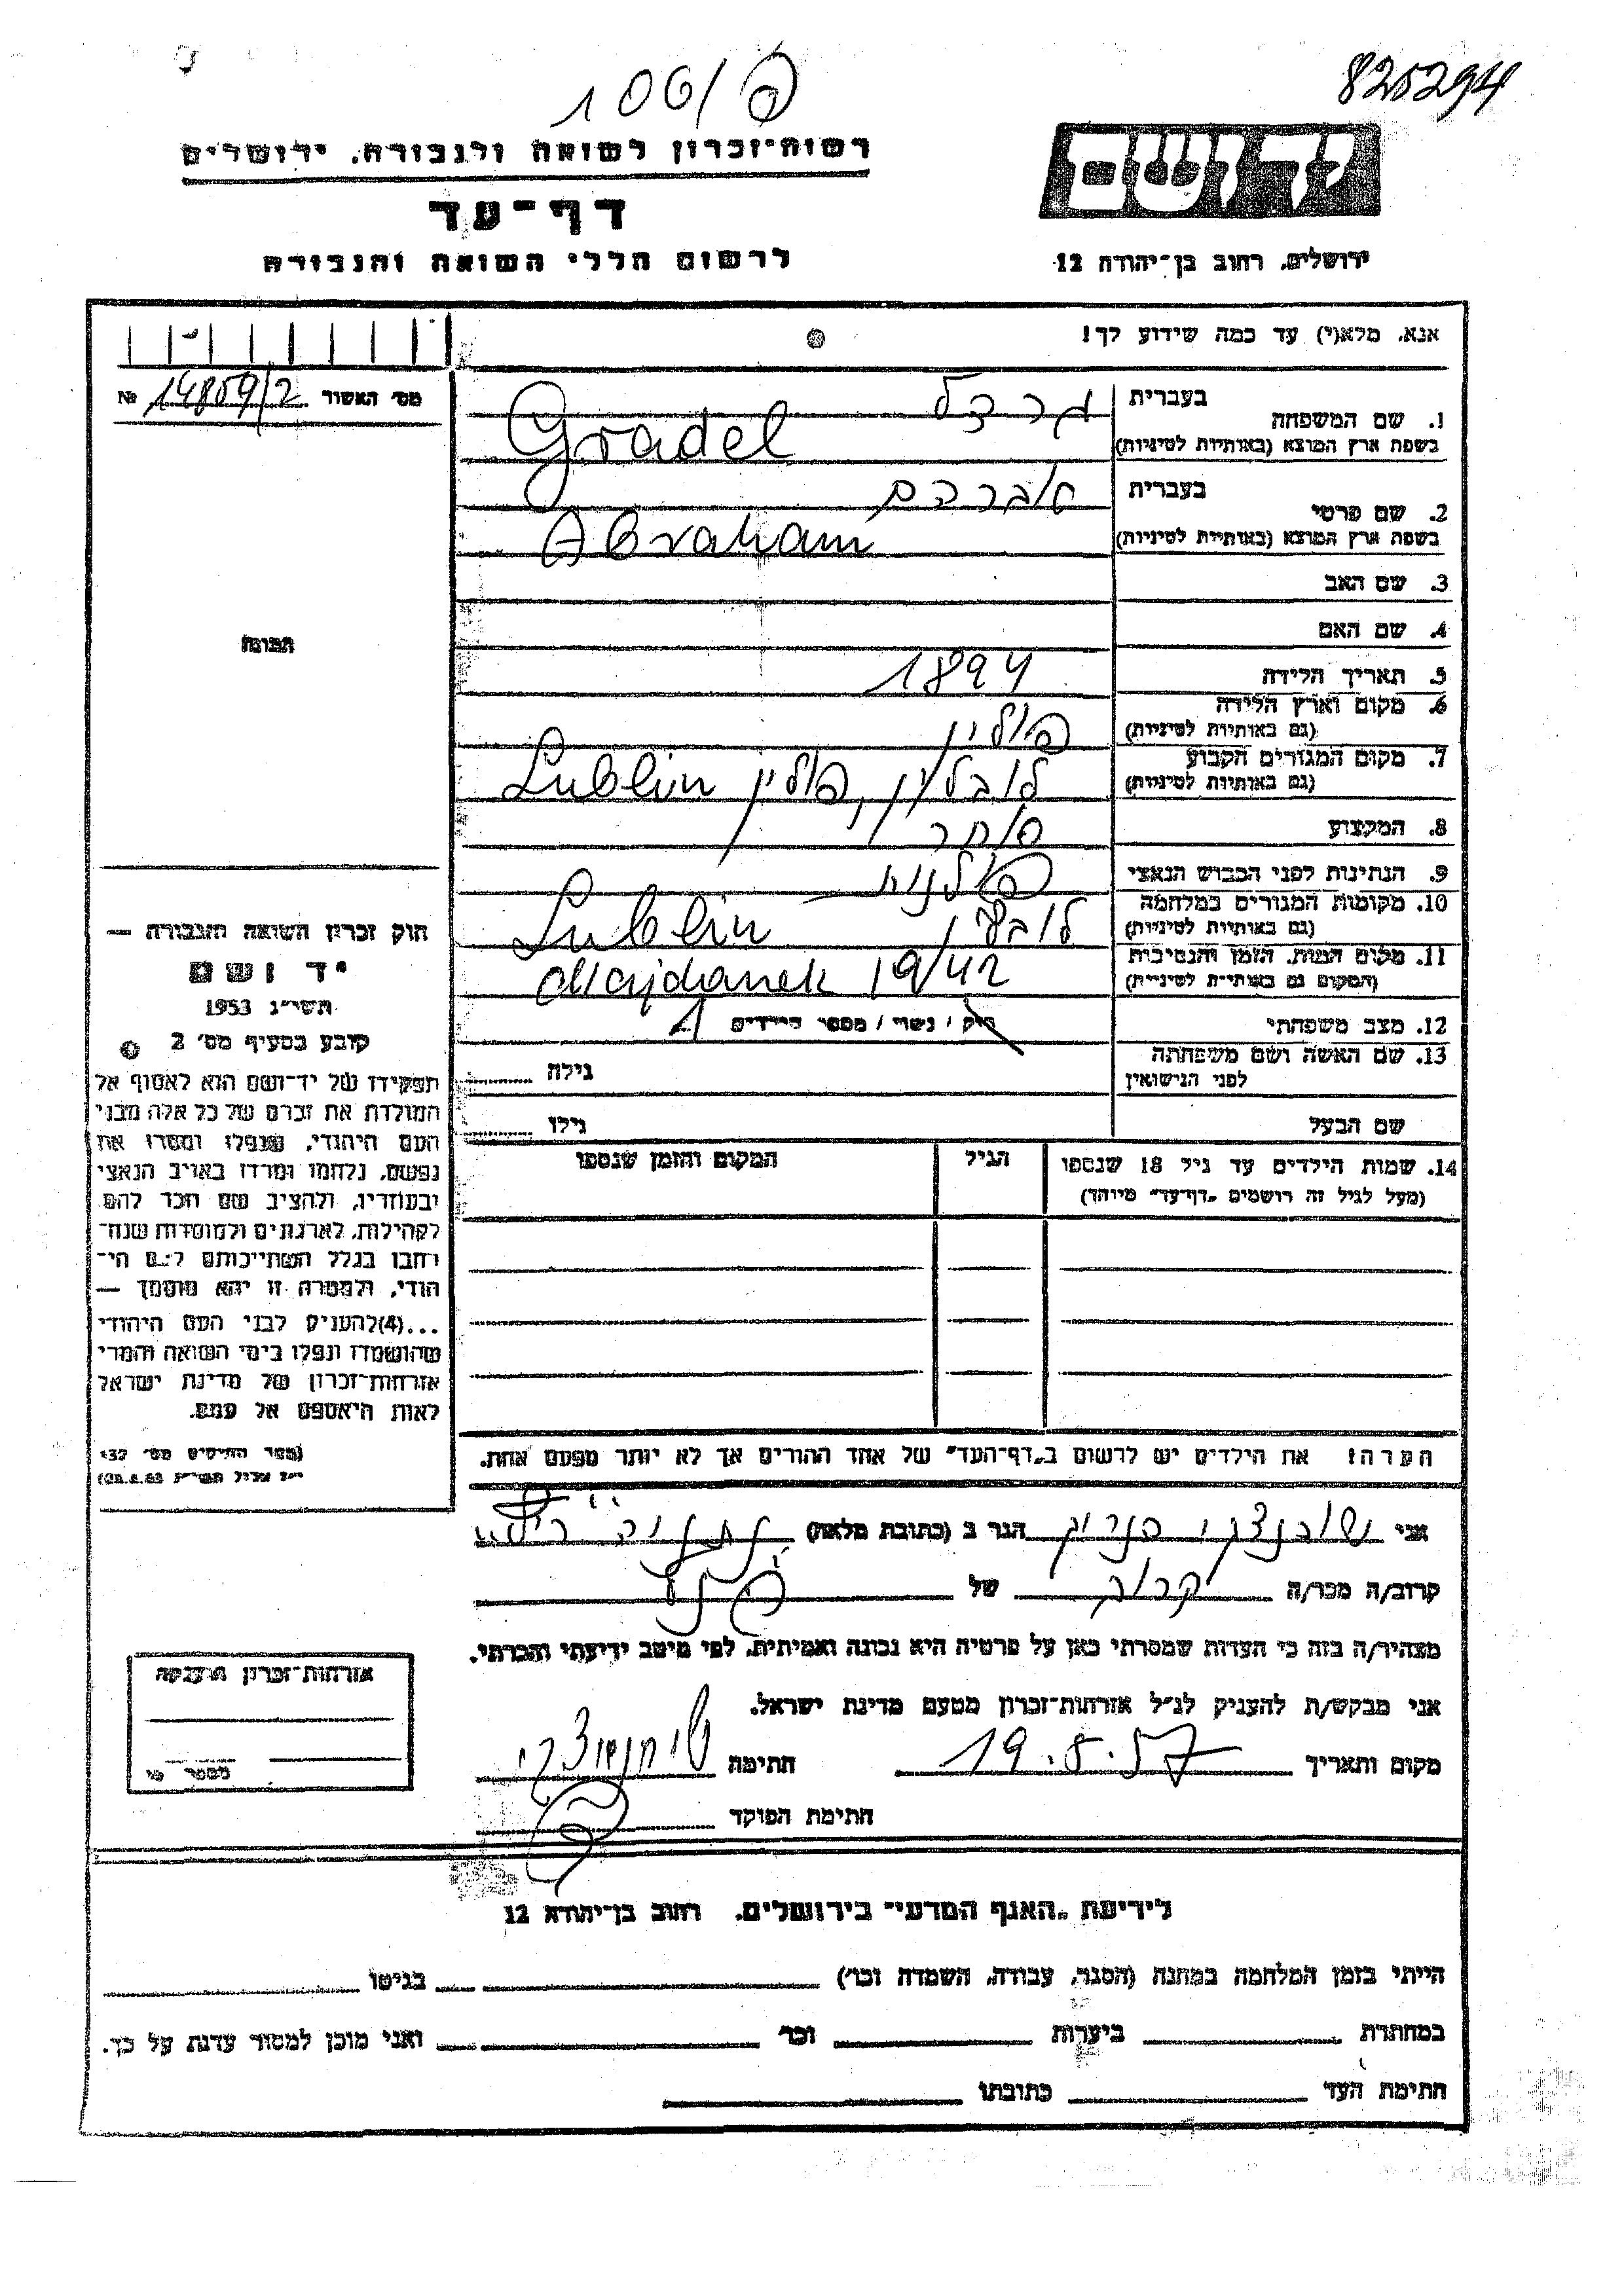 106/פ
825294
רשות־זכרון לשואה ולגבורה, ירושלים
יד ושם
דף־עד
לרשום חללי השואה והגבורה
ירושלים, רחוב בן־יהודה 12
אנא, מלא(י) עד כמה שידוע לך!
מס׳ האשור 14809/2 №
1. שם המשפחה
בעברית גרדל
בשפת ארץ המוצא (באותיות לטיניות) Gradel
2. שם פרטי
בעברית אברהם
בשפת ארץ המוצא (באותיות לטיניות) Abraham
3. שם האב
4. שם האם
5. תאריך הלידה 1894
6. מקום וארץ הלידה פולין
(גם באותיות לטיניות)
7. מקום המגורים הקבוע לובלין, פולין Lublin
(גם באותיות לטיניות)
8. המקצוע סוחר
9. הנתינות לפני הכבוש הנאצי פולנית
10. מקומות המגורים במלחמה לובלין Lublin
(גם באותיות לטיניות)
11. מקום המות, הזמן והנסיבות Majdanek 1942
(המקום גם באותיות לטיניות)
12. מצב משפחתי רוק / נשוי / מספר הילדים 1
13. שם האשה ושם משפחתה גילה
לפני הנישואין
שם הבעל גילו
14. שמות הילדים עד גיל 18 שנספו הגיל המקום והזמן שנספו
(מעל לגיל זה רושמים „דף־עד״ מיוחד)
הערה! את הילדים יש לרשום ב„דף־העד״ של אחד ההורים אך לא יותר מפעם אחת.
התמונה
חוק זכרון השואה והגבורה —
יד ושם
תשי״ג 1953
קובע בסעיף מס׳ 2
תפקידו של יד־ושם הוא לאסוף אל
המולדת את זכרם של כל אלה מבני
העם היהודי, שנפלו ומסרו את
נפשם, נלחמו ומרדו באויב הנאצי
ובעוזריו, ולהציב שם וזכר להם
לקהילות, לארגונים ולמוסדות שנח־
רבו בגלל השתייכותם לעם הי־
הודי, ולמטרה זו יהא מוסמך —
...(4)להעניק לבני העם היהודי
שהושמדו ונפלו בימי השואה והמרי
אזרחות־זכרון של מדינת ישראל
לאות היאספם אל עמם.
אני הגר ב (כתובת מלאה)
קרוב/ה מכר/ה קרוב של
מצהיר/ה בזה כי העדות שמסרתי כאן על פרטיה היא נכונה ואמיתית, לפי מיטב ידיעתי והכרתי.
אני מבקש/ת להעניק לנ״ל אזרחות־זכרון מטעם מדינת ישראל.
מקום ותאריך 19.5.57 חתימה
חתימת הפוקד
אזרחות־זכרון הוענקה
לידיעת „האגף המדעי״ בירושלים, רחוב בן־יהודה 12
הייתי בזמן המלחמה במחנה (הסגר, עבודה, השמדה וכו׳) בגיטו
במחתרת ביערות וכו׳ ואני מוכן למסור עדות על כך.
חתימת העד כתובתו